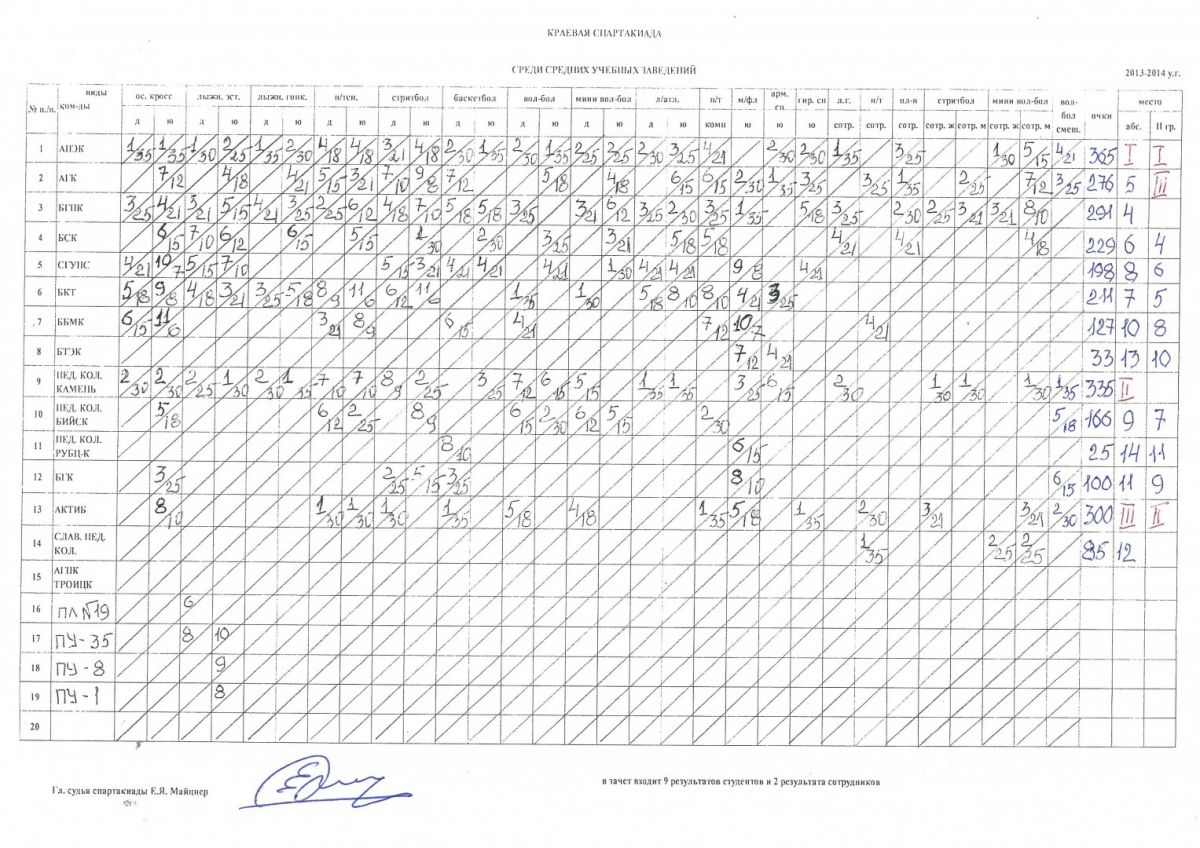 КРАЕВАЯ СПАРТАКИАДА
СРЕДИ СРЕДНИХ УЧЕБНЫХ ЗАВЕДЕНИЙ
2013-2014 у.г.
№ п./п. виды ком-ды ос. кросс лыжн. эст. лыжн. гонк. н/тен. стритбол баскетбол вол-бол мини вол-бол л/атл. н/т м/фл арм. гп. гир. сп л.г. н/т пл-н стритбол мини вол-бол вол-бол смеш. очки место
д ю д ю д ю д ю д ю д ю д ю д ю д ю комп ю ю ю сотр. сотр. сотр. сотр. ж сотр. м сотр. ж сотр. м абс. II гр.
1 АПЭК 1/35 1/35 1/30 2/25 1/35 2/30 4/18 4/18 3/21 4/18 2/30 1/35 2/30 1/35 2/25 2/25 2/30 3/25 4/21 2/30 2/30 1/35 3/25 1/30 5/15 4/21 365 I I
2 АГК 7/12 4/18 4/21 5/15 3/21 7/10 9/8 7/12 5/18 4/18 6/15 6/15 2/30 1/35 3/25 3/25 1/35 2/25 7/12 3/25 276 5 III
3 БГПК 3/25 4/21 3/21 5/15 4/21 3/25 2/25 6/12 4/18 7/10 5/18 5/18 3/25 3/21 6/12 3/25 2/30 3/25 1/35 5/18 3/25 2/30 2/25 3/21 3/21 8/10 291 4
4 БСК 6/15 7/10 6/12 6/15 5/15 1/30 2/30 3/25 3/21 5/18 5/18 4/21 4/21 4/18 229 6 4
5 СГУПС 4/21 10/7 5/15 7/10 5/15 3/21 4/21 4/21 4/21 1/30 4/21 4/21 9/8 4/21 198 8 6
6 БКТ 5/18 9/8 4/18 3/21 3/25 5/18 8/9 11/6 6/12 11/6 1/35 1/30 5/18 8/10 8/10 4/21 3/25 211 7 5
7 ББМК 6/15 11/6 3/21 8/9 6/15 4/21 7/12 10/7 4/21 127 10 8
8 БТЭК 7/12 4/21 33 13 10
9 ПЕД. КОЛ. КАМЕНЬ 2/30 2/30 2/25 1/30 2/30 1/35 7/10 7/10 8/9 2/25 3/25 7/12 6/15 5/15 1/35 1/35 3/25 6/15 2/30 1/30 1/30 1/30 1/35 335 II
10 ПЕД. КОЛ. БИЙСК 5/18 6/12 2/25 8/9 6/15 2/30 6/12 5/15 2/30 5/18 166 9 7
11 ПЕД. КОЛ. РУБЦ-К 8/10 6/15 25 14 11
12 БГК 3/25 2/25 5/15 3/25 8/10 6/15 100 11 9
13 АКТИБ 8/10 1/30 1/30 1/30 1/35 5/18 4/18 1/35 5/18 1/35 2/30 3/21 3/21 2/30 300 III II
14 СЛАВ. ПЕД. КОЛ. 1/35 2/25 2/25 85 12
15 АГПК ТРОИЦК
16 ПЛ №19 6
17 ПУ-35 8 10
18 ПУ-8 9
19 ПУ-1 8
20
Гл. судья спартакиады Е.Я. Майцнер
в зачет входит 9 результатов студентов и 2 результата сотрудников